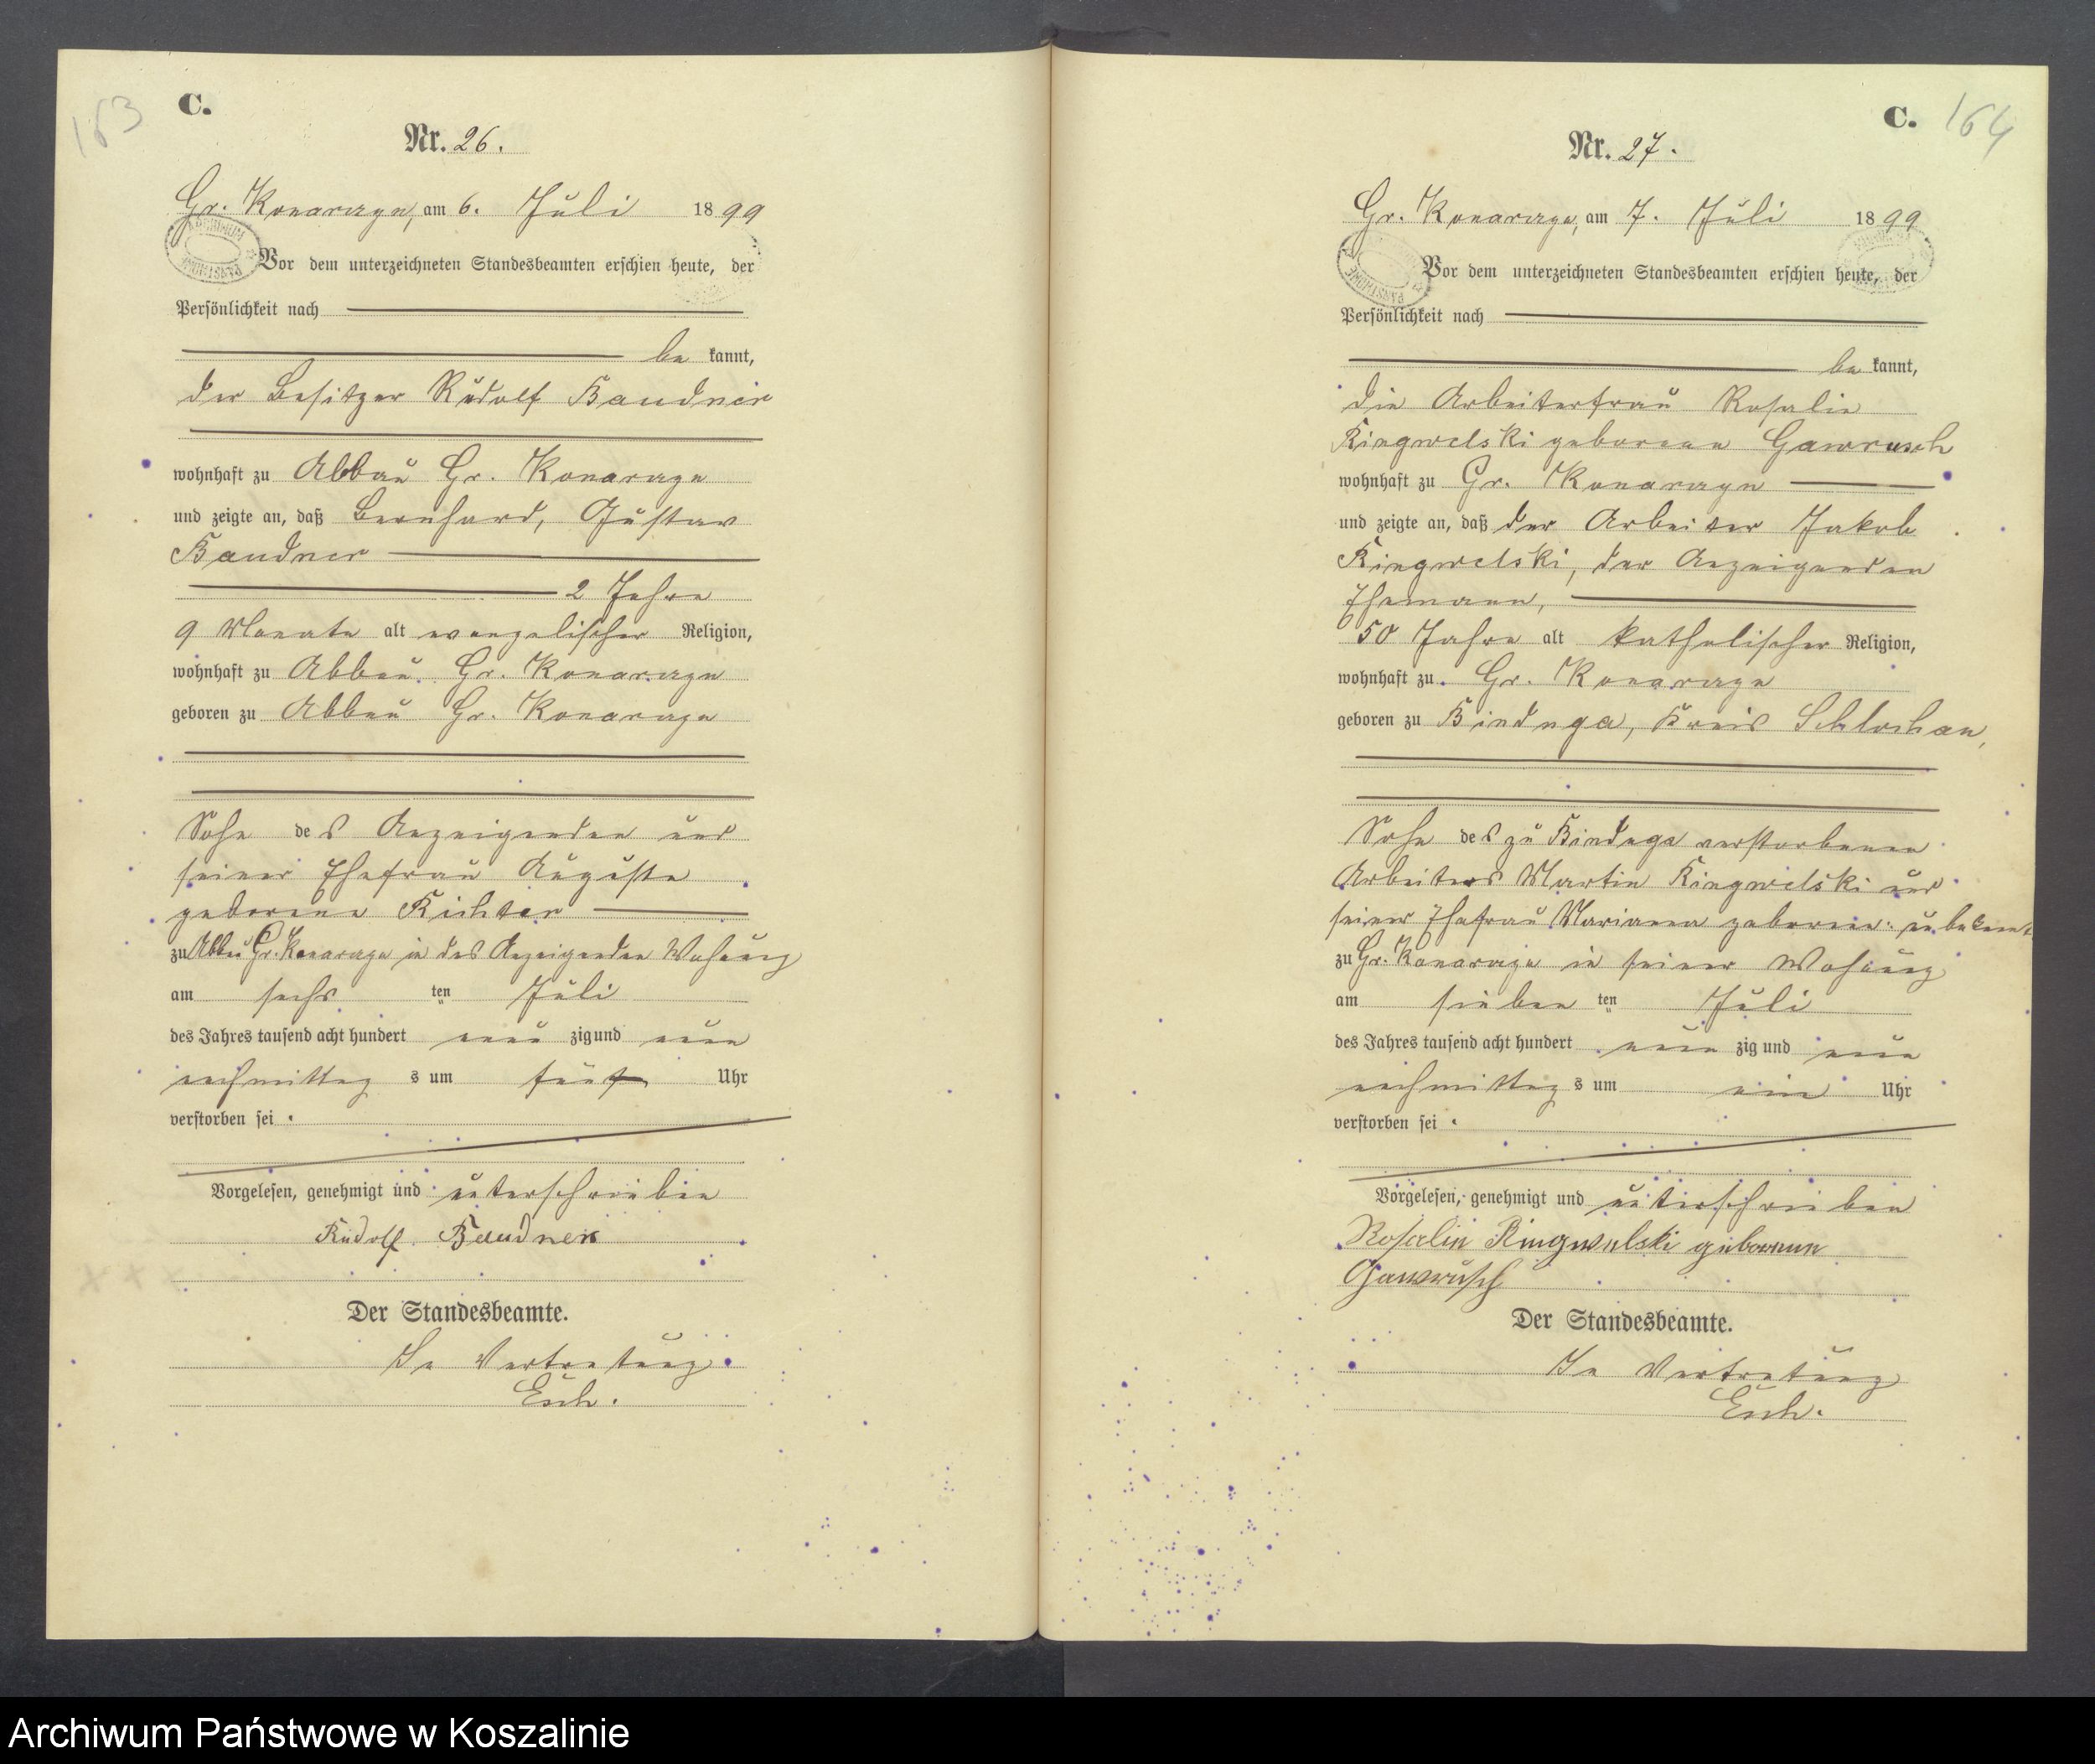 163
C.
Nr. 26.
Gr. Konarczyn, am 6. Juli 1899
Vor dem unterzeichneten Standesbeamten erschien heute, der
Persönlichkeit nach
be kannt,
der Besitzer Rudolf Bandner
wohnhaft zu Abbau Gr. Konarczyn
und zeigte an, daß Bernhard, Gustav
Bandner
2 Jahre
9 Monate alt evangelischer Religion,
wohnhaft zu Abbau Gr. Konarczyn
geboren zu Abbau Gr. Konarczyn
Sohn des Anzeigenden und
seiner Ehefrau Auguste
geborene Richter
zu Abbau Gr. Konarczyn in des Anzeigenden Wohnung
am sechs ten Juli
des Jahres tausend acht hundert neun zig und neun
nachmittag s um fünf Uhr
verstorben sei.
Vorgelesen, genehmigt und unterschrieben
Rudolf Bandner
Der Standesbeamte.
In Vertretung
Esch.
C. 164
Nr. 27.
Gr. Konarczyn, am 7. Juli 1899
Vor dem unterzeichneten Standesbeamten erschien heute, der
Persönlichkeit nach
be kannt,
die Arbeiterfrau Rosalie
Ringwelski geborene Gawrusch
wohnhaft zu Gr. Konarczyn
und zeigte an, daß der Arbeiter Jakob
Ringwelski, der Anzeigenden
Ehemann,
50 Jahre alt katholischer Religion,
wohnhaft zu Gr. Konarczyn
geboren zu Binduga, Kreis Schlochau,
Sohn des zu Binduga verstorbenen
Arbeiters Martin Ringwelski und
seiner Ehefrau Marianna geboren: unbekannt
zu Gr. Konarczyn in seiner Wohnung
am sieben ten Juli
des Jahres tausend acht hundert neun zig und neun
nachmittag s um ein Uhr
verstorben sei.
Vorgelesen, genehmigt und unterschrieben
Rosalie Ringwelski geborenne
Gawrusch
Der Standesbeamte.
In Vertretung
Esch.
Archiwum Państwowe w Koszalinie